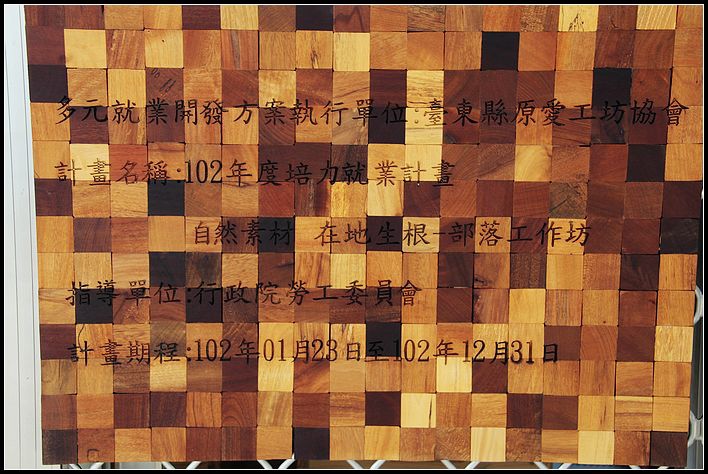 多元就業開發方案執行單位:臺東縣原愛工坊協會
計畫名稱:102年度培力就業計畫
自然素材 在地生根-部落工作坊
指導單位:行政院勞工委員會
計畫期程:102年01月23日至102年12月31日